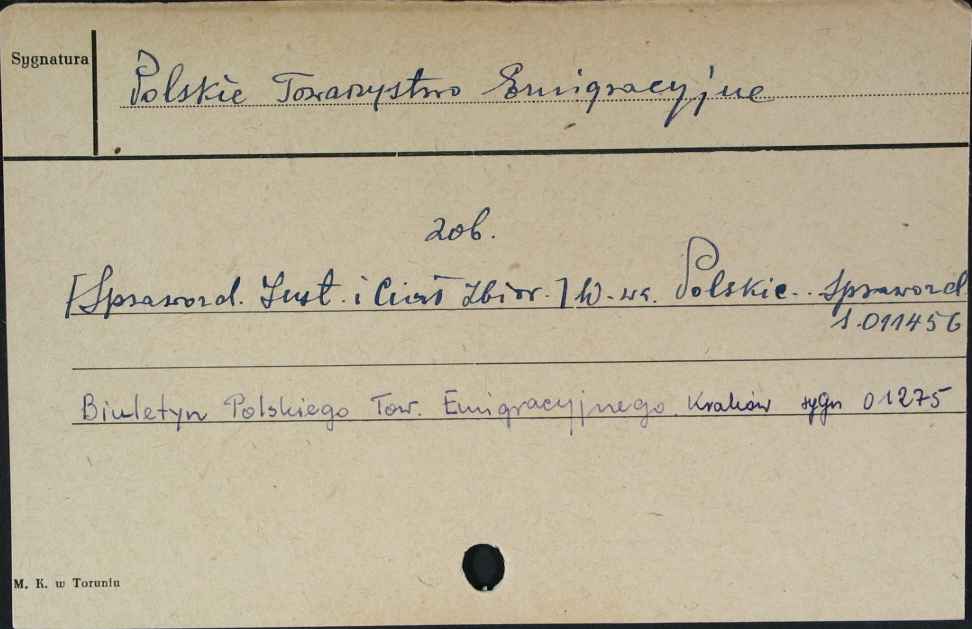 Sygnatura
Polskie Towarzystwo Emigracyjne
zob.
[Sprawozd. Inst. i Ciał Zbior.] W-wa. Polskie.. Sprawozd.
S.011456
Biuletyn Polskiego Tow. Emigracyjnego. Kraków sygn 01275
M. K. w Toruniu